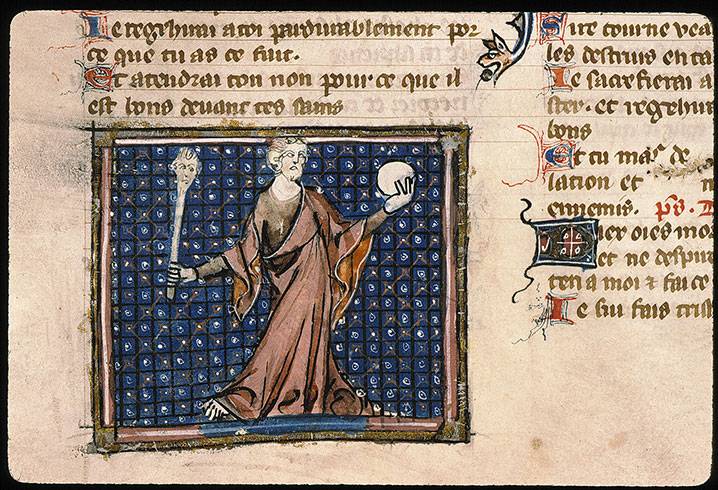 Ie regehirai a toi pardurablement por
ce que tu as ce fait.
Et atendrai ton non pour ce que il
est bons devant tes sains
Sire tourne
les destrui en ta
Ie sacrefierai a
et regehir
bons
Et tu mas de
lation et
ennemis. ps.
oies mo
et ne despi
ten a moi & fai ce
Ie sui fais trist